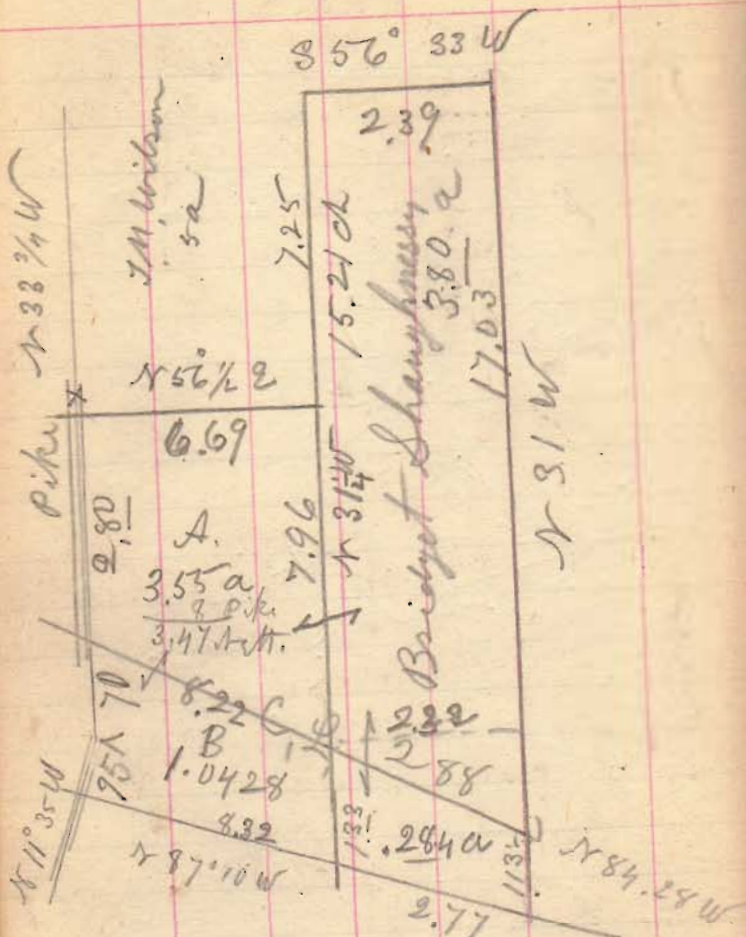 S 56° 33 W
2.39
N 33 3/4 W
J.M. Wilson
5a
7.25
15.21 ch
Bridget Shaughnessy
3.80 a
17.03
N 31 W
N 56 1/2 E
Pike
6.69
2,80
A.
3.55 a
8 Pike
3.47 Nett.
7.96
N 31 1/4 W
70
8.22
B
1.0428
2.22
2 88
N 11° 35 W
8.32
N 87° 10 W
133
.284 a
113
N 84.28 W
2.77